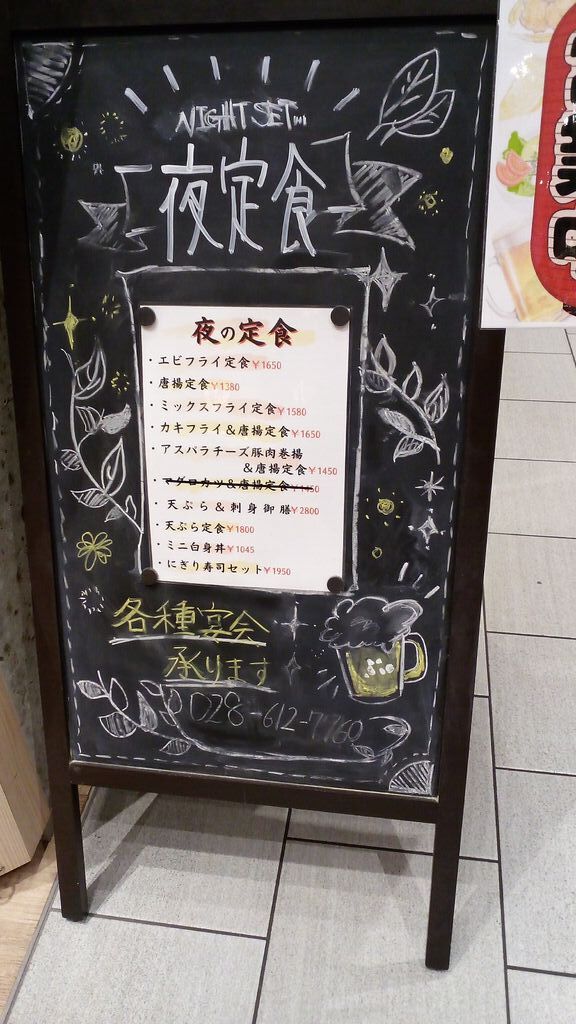 NIGHT SET
夜定食
夜の定食
・エビフライ定食￥1650
・唐揚定食￥1380
・ミックスフライ定食￥1580
・カキフライ＆唐揚定食￥1650
・アスパラチーズ豚肉巻揚
＆唐揚定食￥1450
・マグロカツ＆唐揚定食￥1450
・天ぷら＆刺身御膳￥2800
・天ぷら定食￥1800
・ミニ白身丼￥1045
・にぎり寿司セット￥1950
各種宴会
承ります
028-612-7760